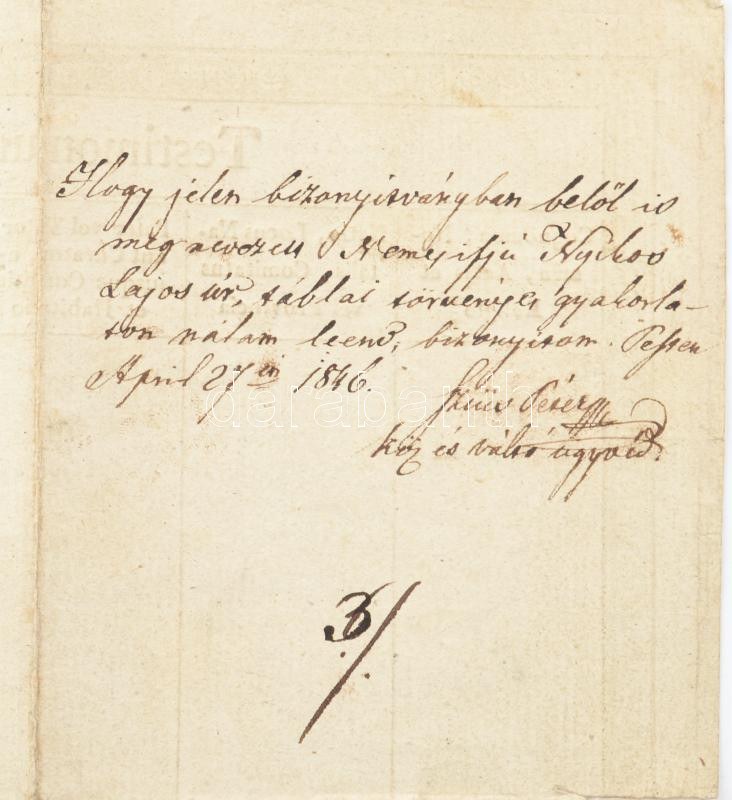 Hogy jelen bizonyitványban belől is
meg nevezett Nemes ifjú Nyikos
Lajos úr, táblai törvényes gyakorla-
ton nálam leend, bizonyitom. Pesten
April 27én 1846.
Szücs Péter
köz és váltó ügyvéd.
3/.